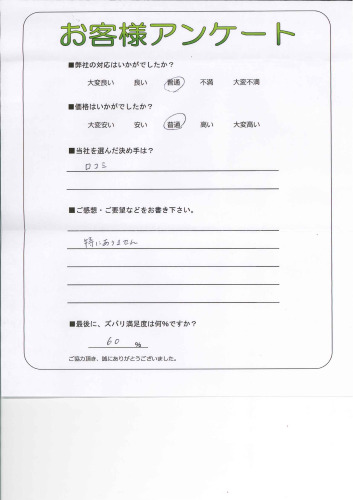 お客様アンケート
■弊社の対応はいかがでしたか？
大変良い 良い 普通 不満 大変不満
■価格はいかがでしたか？
大変安い 安い 普通 高い 大変高い
■当社を選んだ決め手は？
口コミ
■ご感想・ご要望などをお書き下さい。
特にありません
■最後に、ズバリ満足度は何％ですか？
60 %
ご協力頂き、誠にありがとうございました。